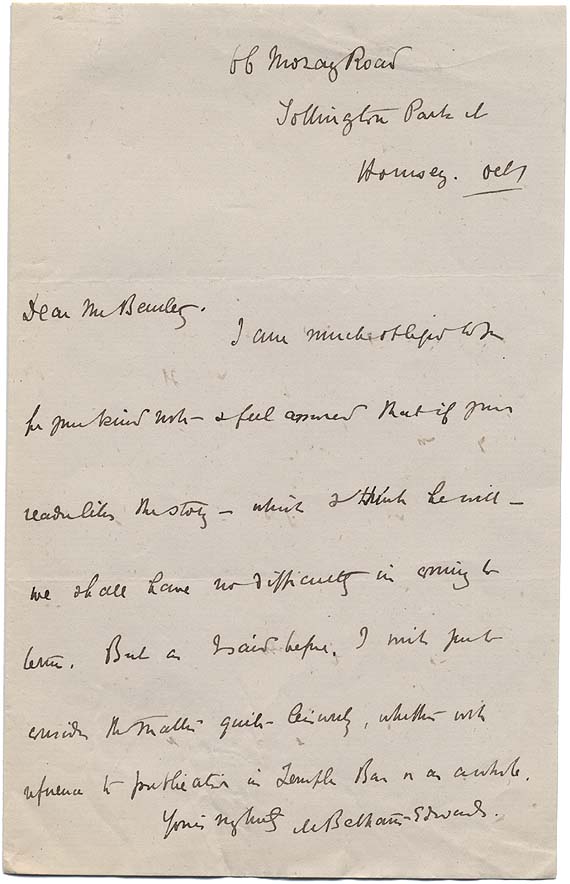 66 Moray Road
Tollington Park
Hornsey. Oct 1
Dear Mr Bentley.
I am much obliged to you
for your kind note & feel assured that if your
reader likes the story – which I think he will –
we shall have no difficulty in coming to
terms. But as I said before, I wish you to
consider the matter quite leisurely, whether with
reference to publication in Temple Bar or as a whole.
Yours M Betham-Edwards.